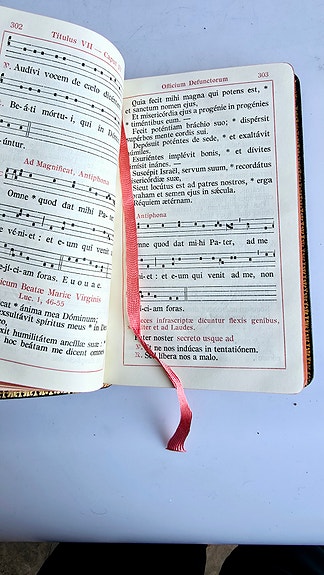 302
Titulus VII — Caput
℣. Audívi vocem de cælo
Be-á-ti mórtu-i, qui in Dó-
úntur.
Ad Magnificat, Antiphona
Omne * quod dat mihi Pa-
vé-ni-et : et e-um qui venit
e-jí-ci-am foras. E u o u a e.
ticum Beatæ Mariæ Virginis
Luc. 1, 46-55
cat * ánima mea Dóminum;
exsultávit spíritus meus * in
exit humilitátem ancíllæ suæ : *
hoc beátam me dicent omnes
Officium Defunctorum 303
Quia fecit mihi magna qui potens est, *
et sanctum nomen ejus.
Et misericórdia ejus a progénie in progénies
* timéntibus eum.
Fecit poténtiam bráchio suo; * dispérsit
supérbos mente cordis sui.
Depósuit poténtes de sede, * et exaltávit
húmiles.
Esuriéntes implévit bonis, * et dívites
dimísit inánes. —
Suscépit Israël, servum suum, * recordátus
misericórdiæ suæ,
Sicut locútus est ad patres nostros, * erga
Abraham et semen ejus in sǽcula.
Réquiem ætérnam.
Antiphona
Omne quod dat mi-hi Pa-ter, ad me
vé-ni-et : et e-um qui venit ad me, non
e-jí-ci-am foras.
Preces infrascriptæ dicuntur flexis genibus,
et ad Laudes.
Pater noster secreto usque ad
℣. Et ne nos indúcas in tentatiónem.
℟. Sed líbera nos a malo.